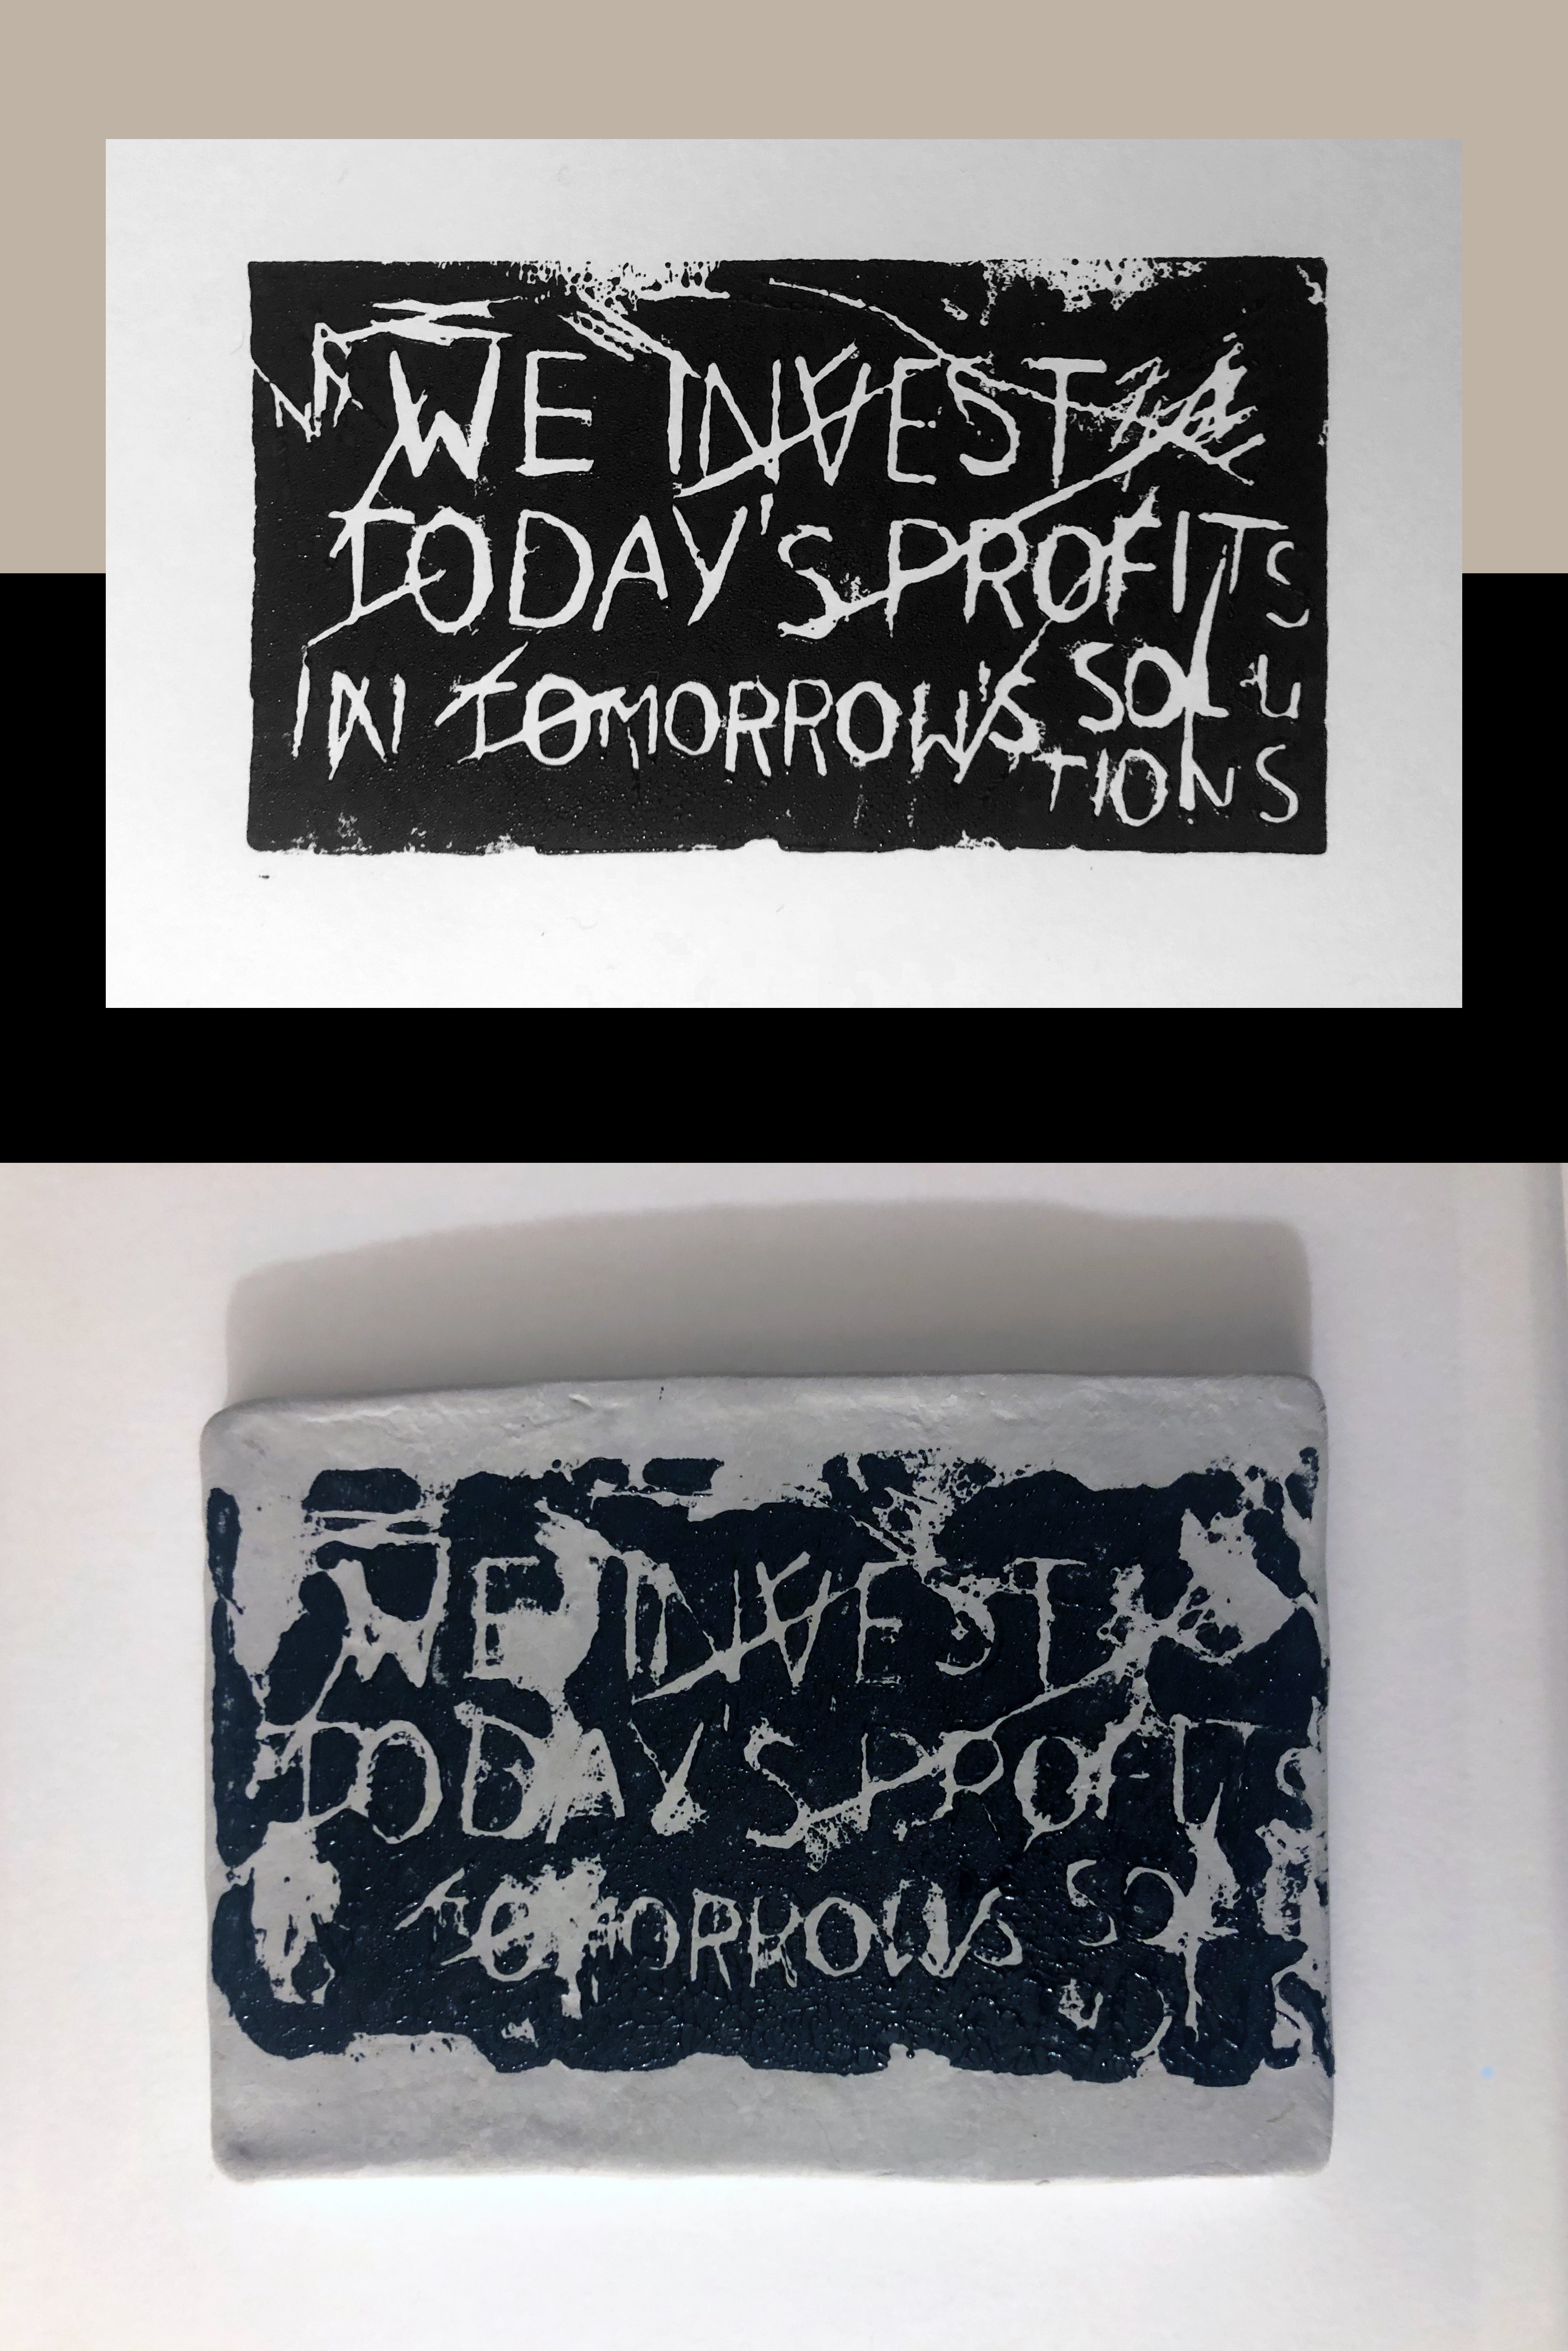 WE INVEST
TODAY'S PROFITS
IN TOMORROW'S SOLU
TIONS
WE INVEST
TODAY'S PROFITS
TOMORROWS SOL